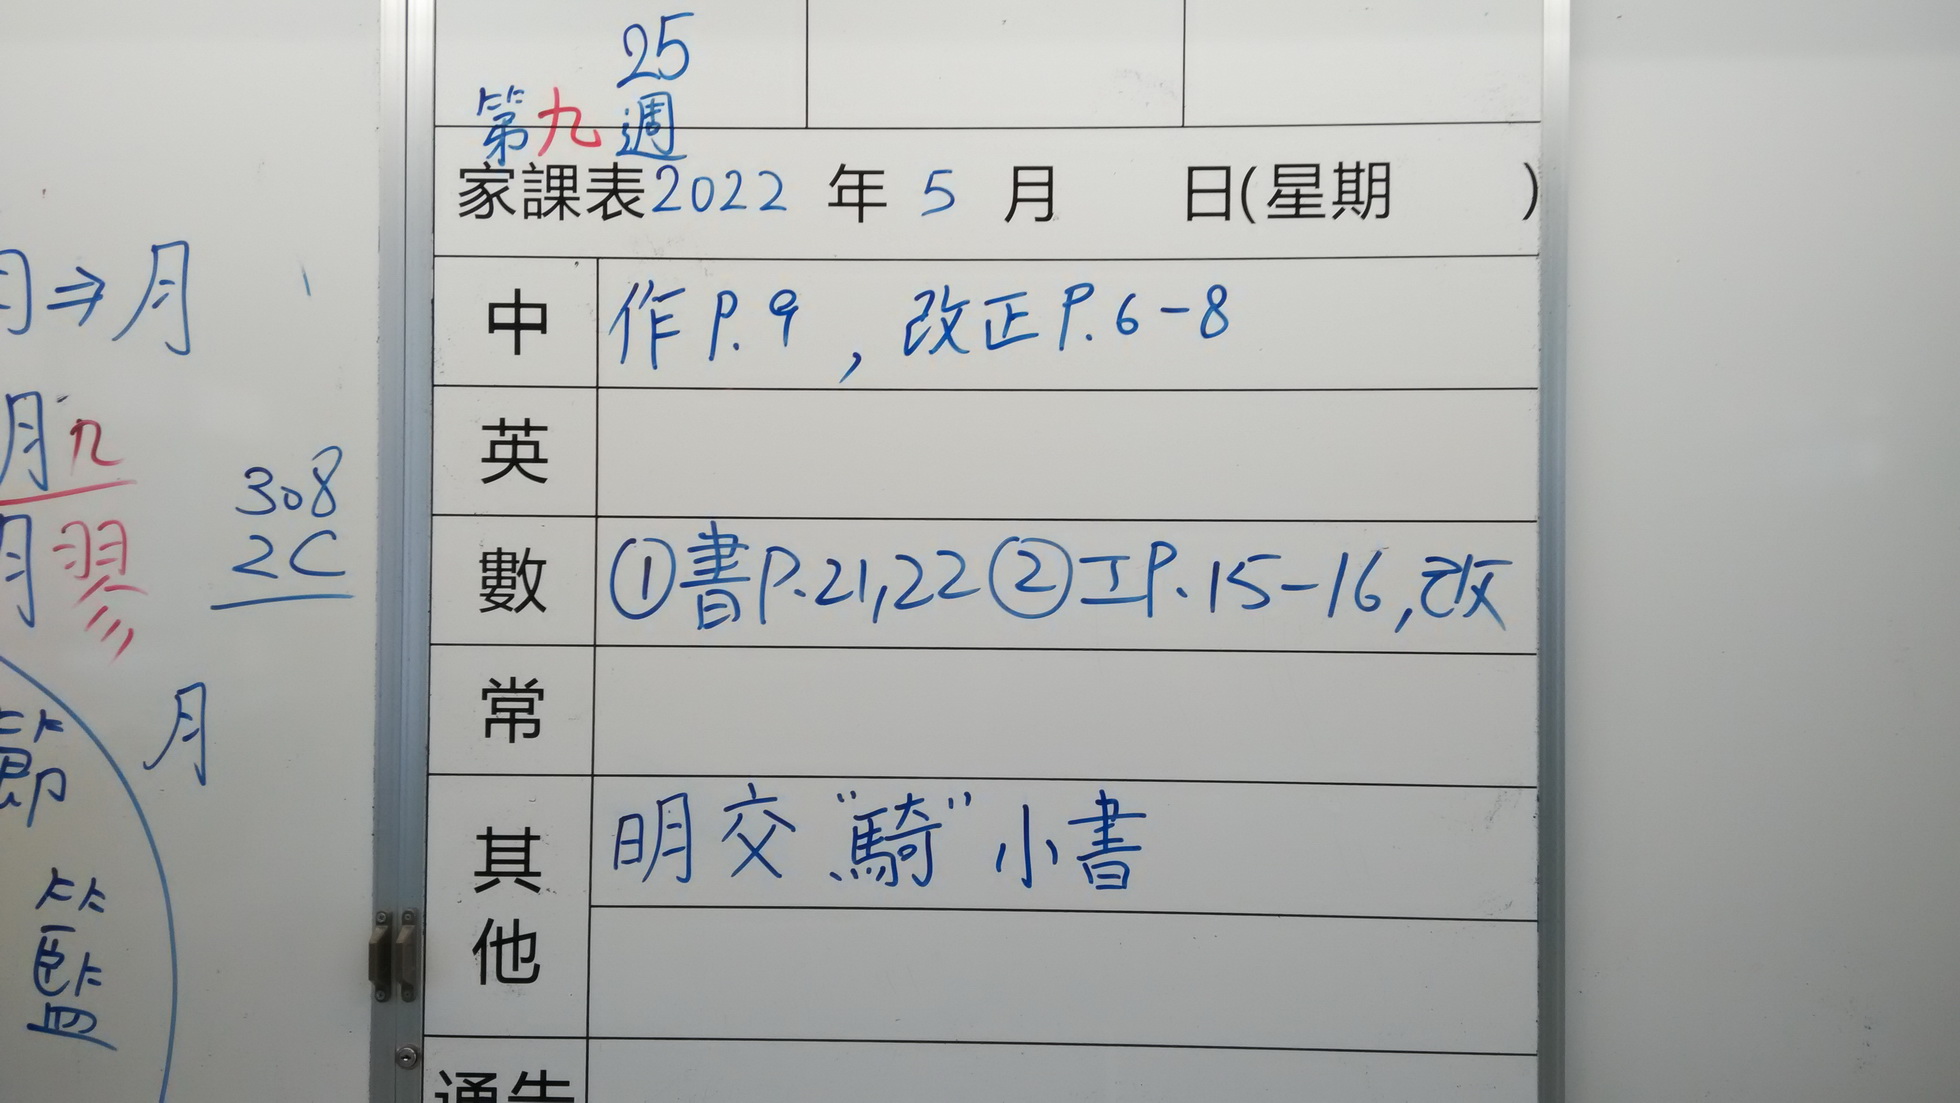 25
第九週
家課表2022 年 5 月 日(星期 )
中 作P.9 , 改正P.6-8
英
數 ①書P.21,22 ②工P.15-16,改
常
其他 明交“騎”小書
通告
月⇒月
月九
月翏
308
2C
月
節
籃